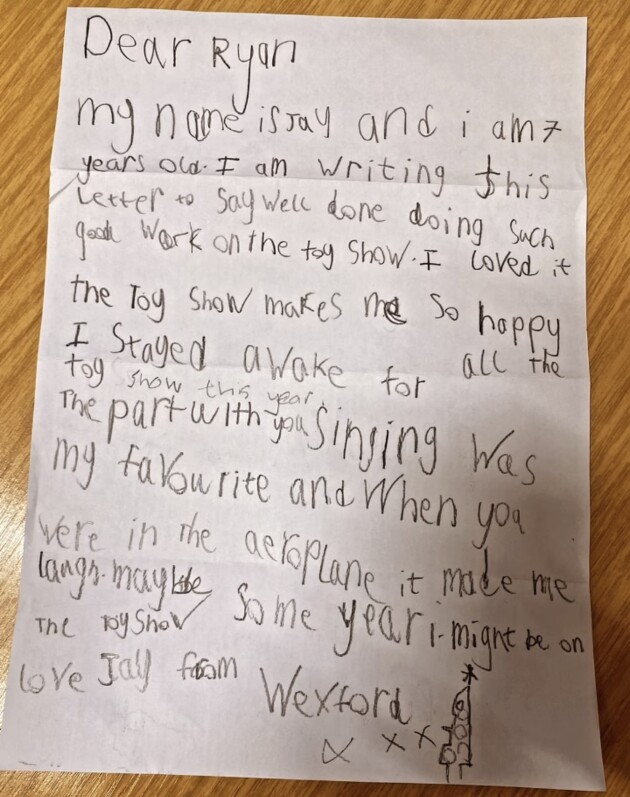 Dear Ryan
my name is Jay and i am 7
years old. I am writing this
Letter to say well done doing such
good work on the toy show. I loved it
the Toy Show makes me so happy
I stayed awake for all the
toy show this year.
The part with you Sinjing was
my favourite and when you
were in the aeroplane it made me
langh. maybe some year i might be on
The Toy Show
love Jay from Wexford
x x x